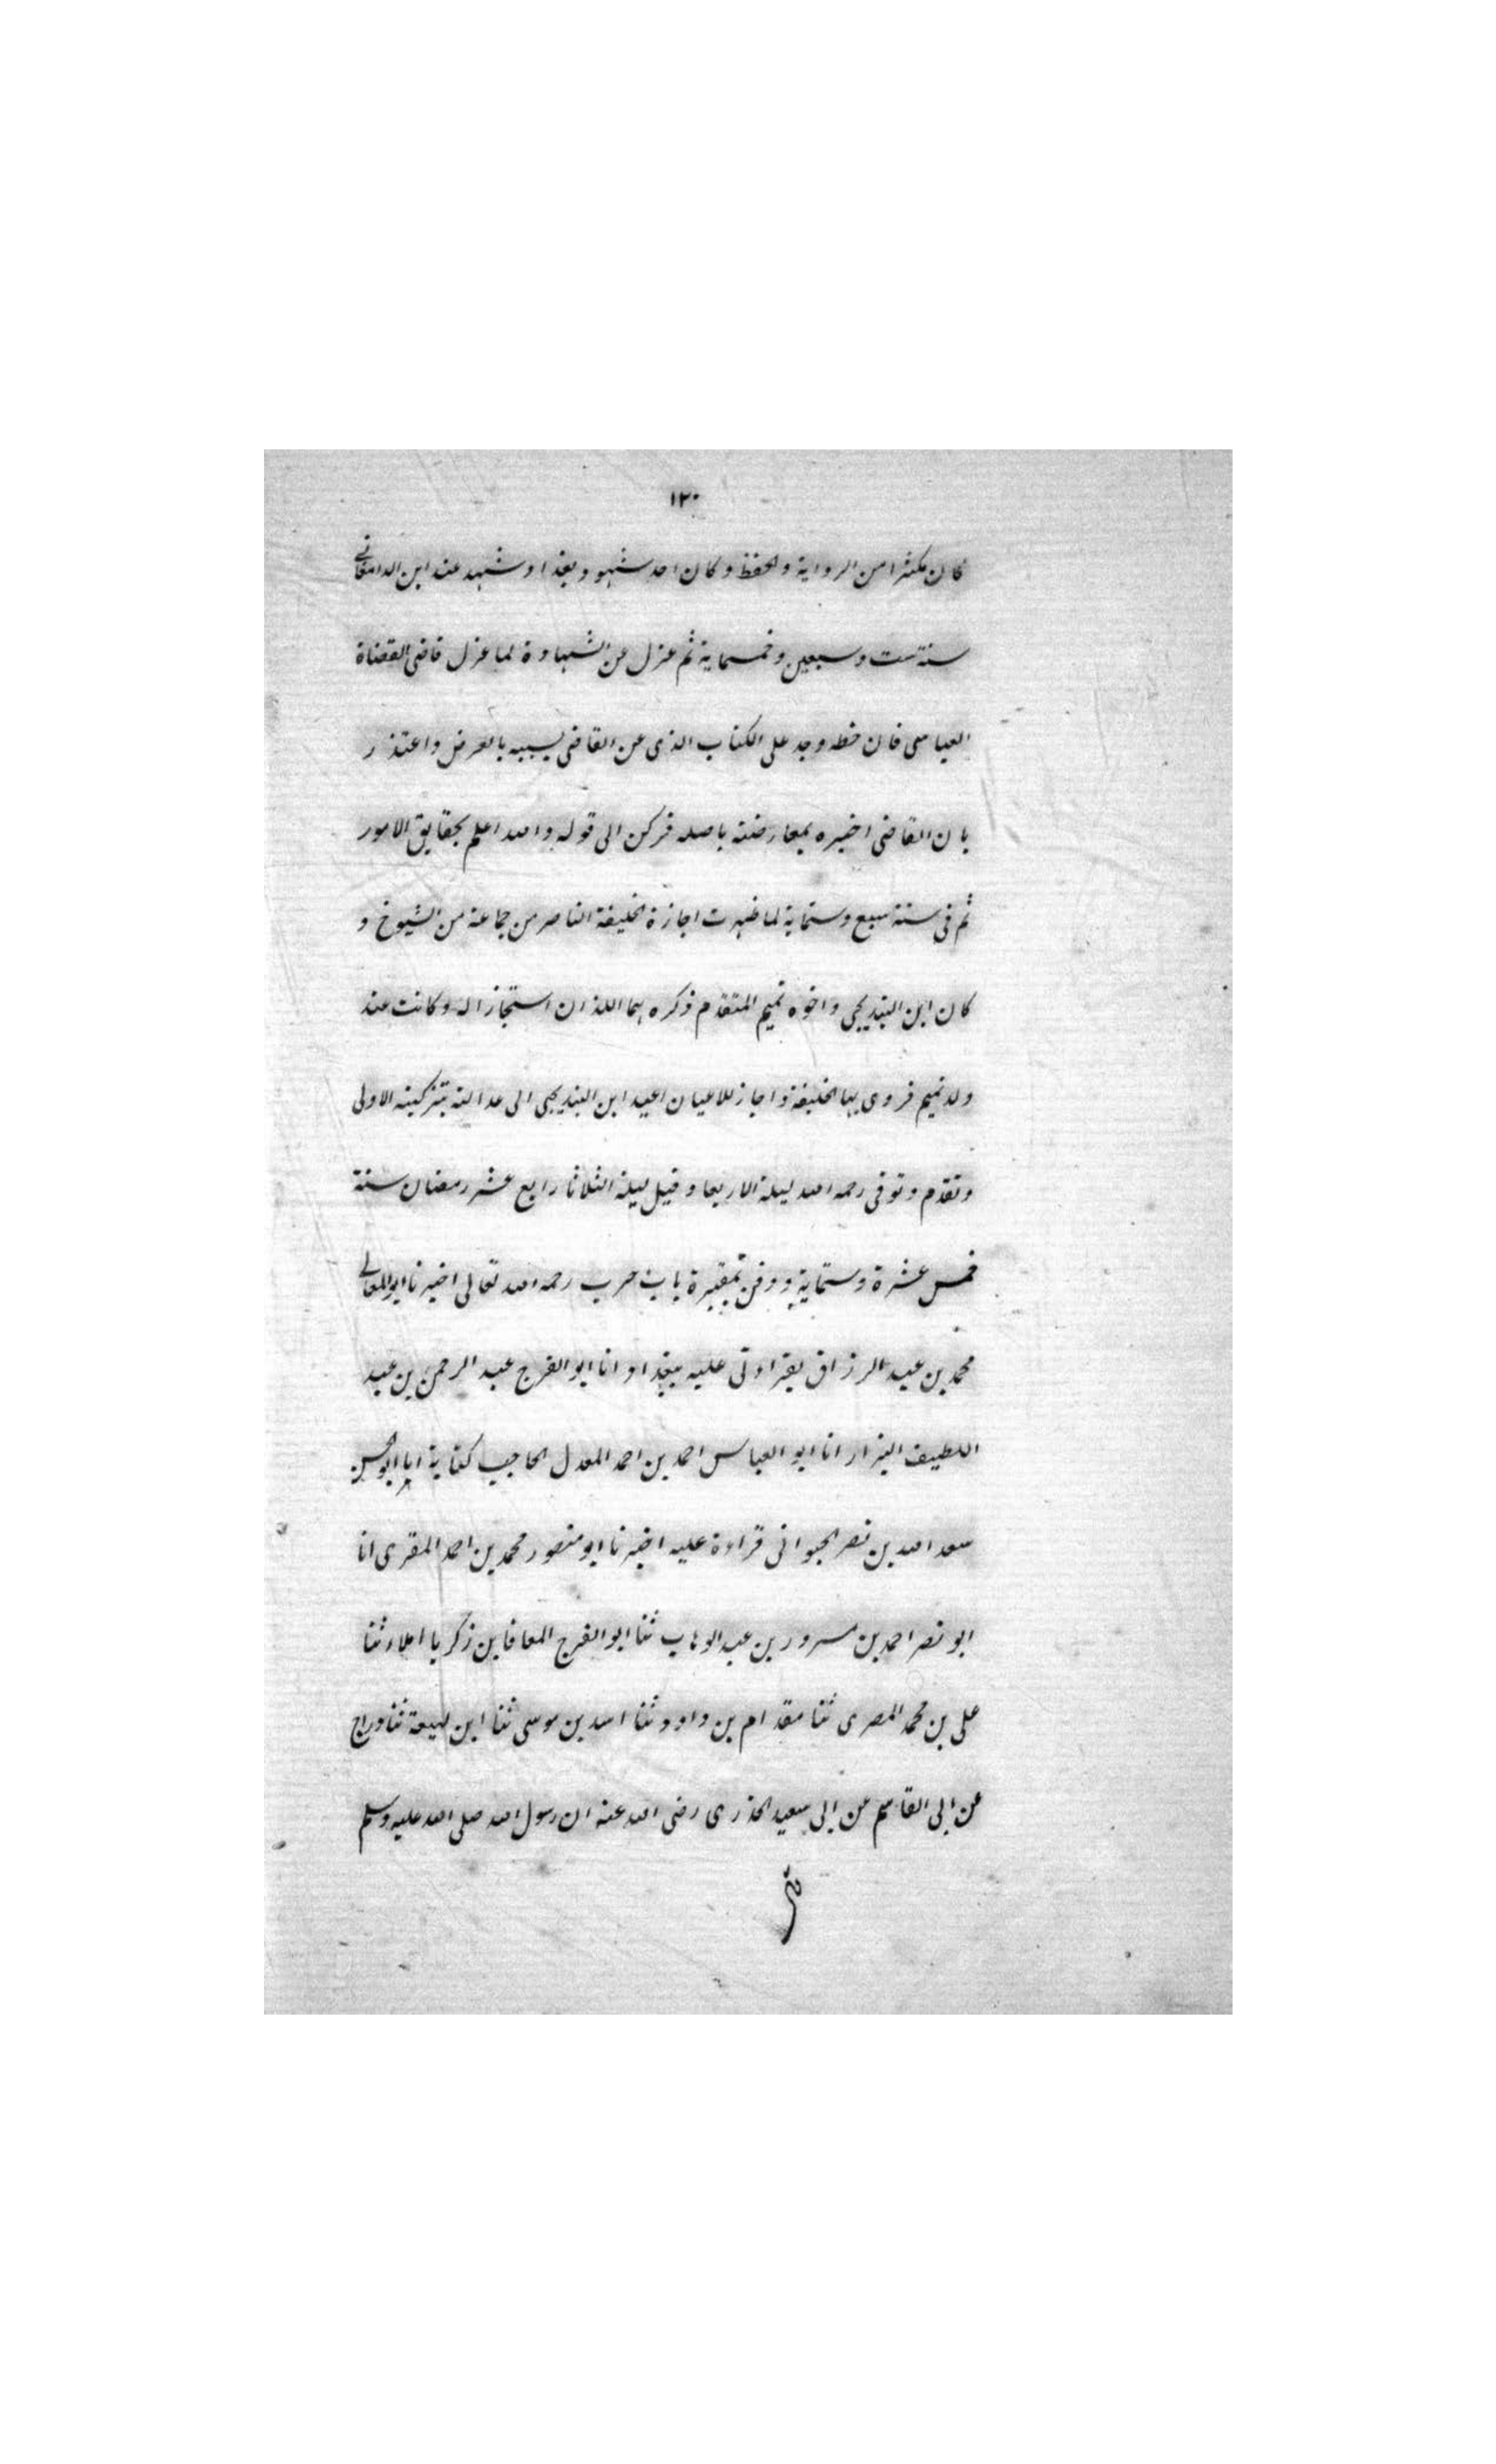 ١٢٠
كان مكثرا من الرواية والحفظ وكان احد شهود بغداد وشهد عند ابن الدامغاني
سنة ست وسبعين وخمسماية ثم عزل عن الشهادة لما عزل قاضى القضاة
العباسى فان خطه وجد على الكتاب الذى عن القاضى بسببه بالعرض واعتذر
بان القاضى اخبره بمعارضته باصله فركن الى قوله والله اعلم بحقايق الامور
ثم فى سنة سبع وستماية لما ظهرت اجازة الخليفة الناصر من جماعة من الشيوخ و
كان ابن البنديجى واخوه تميم المتقدم ذكره هما اللذان استجازا له وكانت عند
ولد تميم فروى بها الخليفة واجاز للاعيان اعيد ابن البنديجى الى عدالته بتزكيته الاولى
وتقدم وتوفى رحمه الله ليلة الاربعا وقيل ليلة الثلاثا رابع عشر رمضان سنة
خمس عشرة وستماية ودفن بمقبرة باب حرب رحمه الله تعالى اخبرنا ابو المعالى
محمد بن عبد الرزاق بقراءتى عليه ببغداد انا ابو الفرج عبد الرحمن بن عبد
اللطيف البزار انا ابو العباس احمد بن احمد المعدل الحاجب كتابة انا ابو الحسن
سعد الله بن نصر الحيوانى قراءة عليه اخبرنا ابو منصور محمد بن احمد المقرى انا
ابو نصر احمد بن مسرور بن عبد الوهاب ثنا ابو الفرج المعافا بن زكريا املاء ثنا
على بن محمد المصرى ثنا مقدام بن داود ثنا اسد بن موسى ثنا ابن لهيعة ثنا دراج
عن ابى القاسم عن ابى سعيد الخدرى رضى الله عنه ان رسول الله صلى الله عليه وسلم